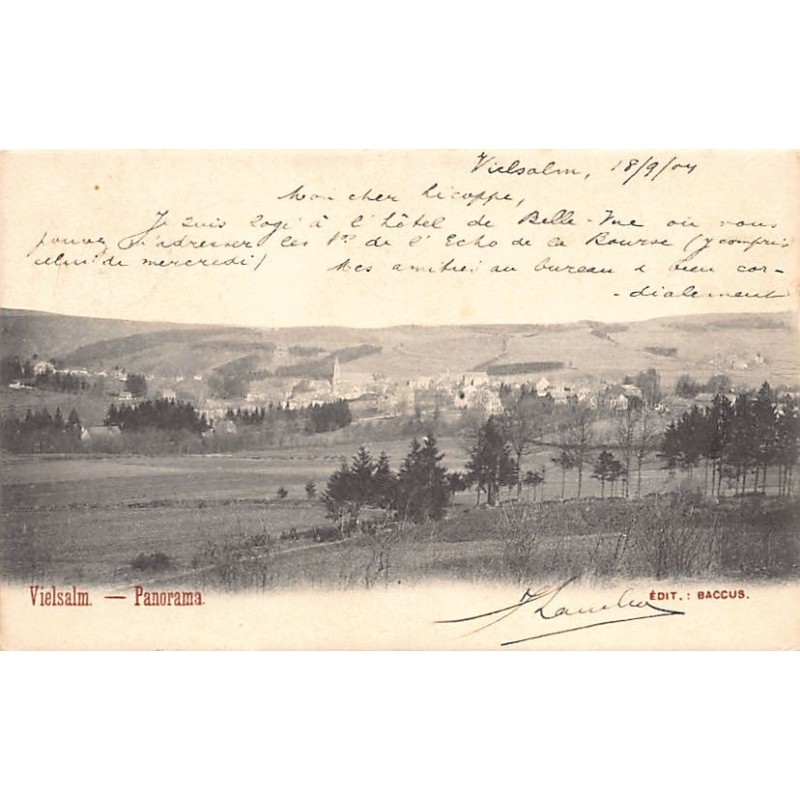 Vielsalm, 18/9/04
Mon cher Licoppe,
Je suis logé à l'hôtel de Belle-Vue où vous
pouvez m'adresser les Nos de l'Echo de la Bourse (y compris
celui de mercredi) Mes amitiés au bureau & bien cor-
-dialement
Vielsalm. — Panorama.
ÉDIT. : BACCUS.